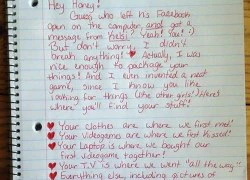 Hey Honey!
Guess who left his Facebook
open on the computer, and got a
message from Kebi? Yeah! You! :)
But don't worry, I didn't
break anything! ♥ Actually, I was
nice enough to package your
things! And I even invented a neat
game, since I know you like
looking for things like other girls! Here's
where you'll find your stuff!
♥ Your clothes are where we first met!
♥ Your videogames are where we first kissed!
♥ Your Laptop is where we bought our
first videogame together!
♥ Your T.V is where we went "all the way"!
♥ Everything else, including pictures of